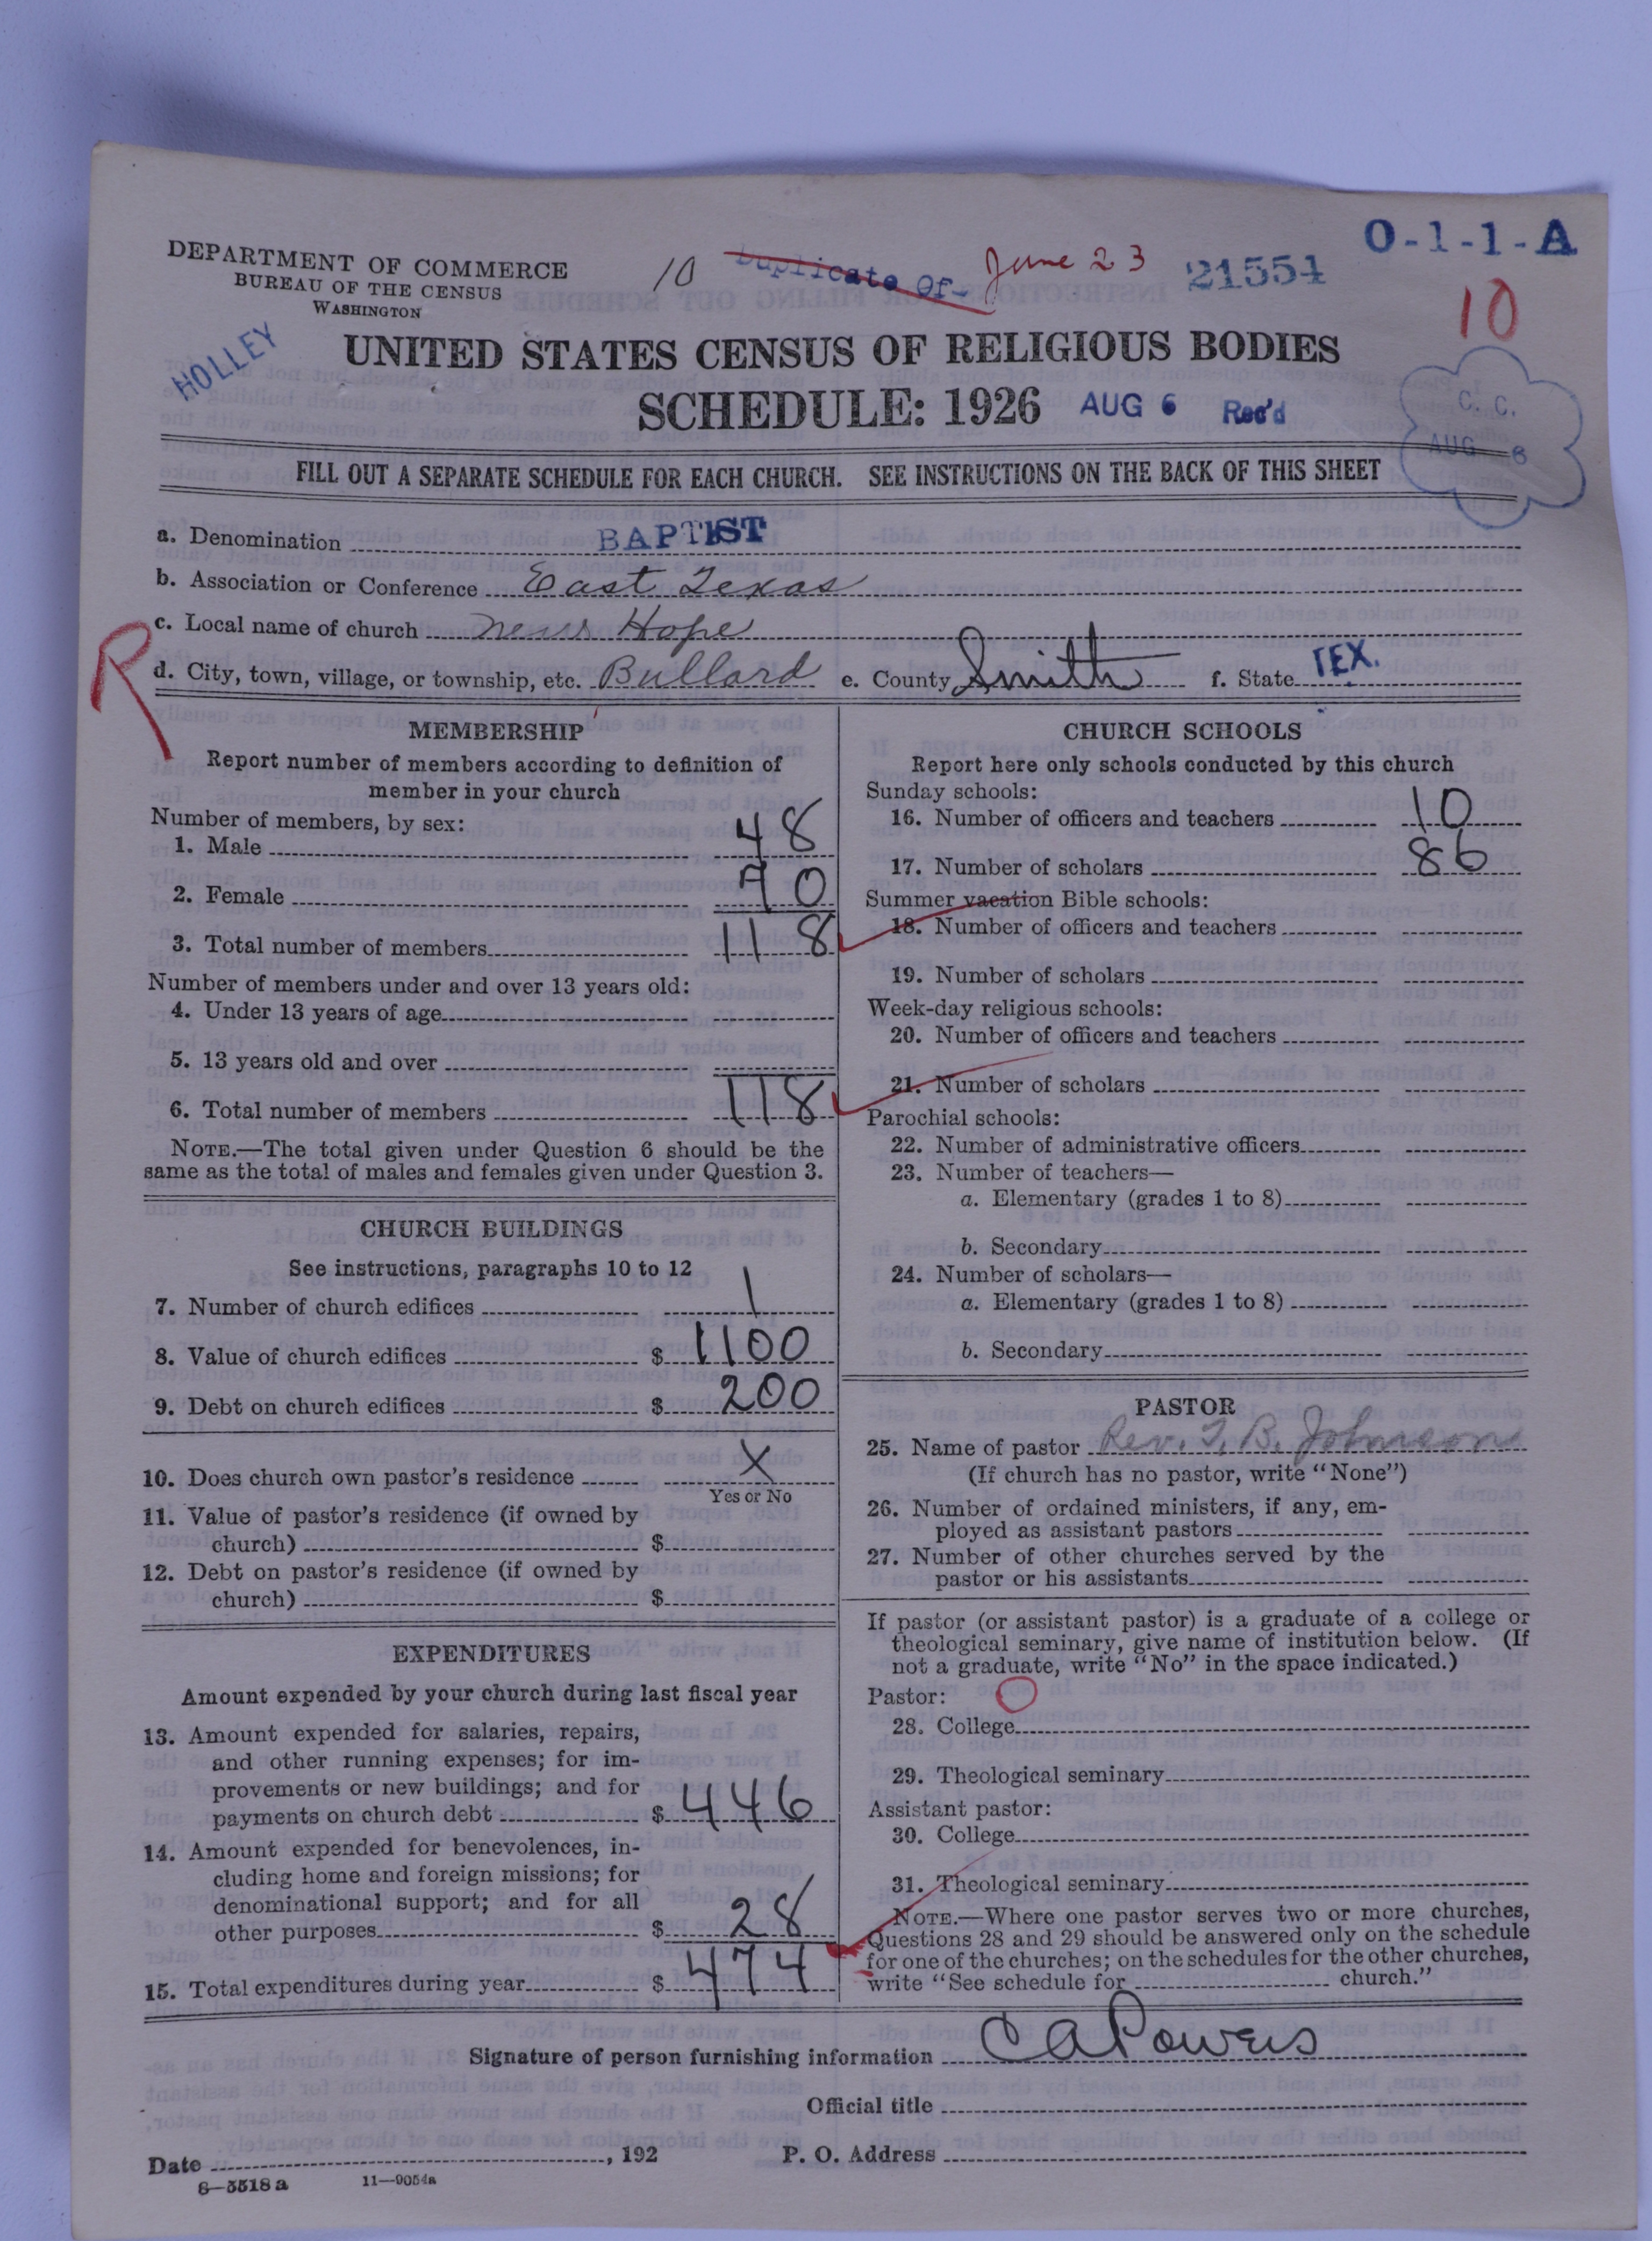 DEPARTMENT OF COMMERCE
BUREAU OF THE CENSUS
WASHINGTON
10
Duplicate Of- June 23
21554
O-1-1-A
10
HOLLEY
UNITED STATES CENSUS OF RELIGIOUS BODIES
SCHEDULE: 1926
AUG 6 Rec'd
C. C.
AUG 6
FILL OUT A SEPARATE SCHEDULE FOR EACH CHURCH. SEE INSTRUCTIONS ON THE BACK OF THIS SHEET
a. Denomination BAPTIST
b. Association or Conference East Texas
c. Local name of church New Hope
R
d. City, town, village, or township, etc. Bullard e. County Smith f. State TEX.
MEMBERSHIP
Report number of members according to definition of
member in your church
Number of members, by sex:
1. Male 48
2. Female 70
3. Total number of members 118
Number of members under and over 13 years old:
4. Under 13 years of age
5. 13 years old and over
6. Total number of members 118
NOTE.—The total given under Question 6 should be the
same as the total of males and females given under Question 3.
CHURCH BUILDINGS
See instructions, paragraphs 10 to 12
7. Number of church edifices 1
8. Value of church edifices $ 1100
9. Debt on church edifices $ 200
10. Does church own pastor's residence X
Yes or No
11. Value of pastor's residence (if owned by
church) $
12. Debt on pastor's residence (if owned by
church) $
EXPENDITURES
Amount expended by your church during last fiscal year
13. Amount expended for salaries, repairs,
and other running expenses; for im-
provements or new buildings; and for
payments on church debt $ 446
14. Amount expended for benevolences, in-
cluding home and foreign missions; for
denominational support; and for all
other purposes $ 28
15. Total expenditures during year $ 474
CHURCH SCHOOLS
Report here only schools conducted by this church
Sunday schools:
16. Number of officers and teachers 10
17. Number of scholars 86
Summer vacation Bible schools:
18. Number of officers and teachers
19. Number of scholars
Week-day religious schools:
20. Number of officers and teachers
21. Number of scholars
Parochial schools:
22. Number of administrative officers
23. Number of teachers—
a. Elementary (grades 1 to 8)
b. Secondary
24. Number of scholars—
a. Elementary (grades 1 to 8)
b. Secondary
PASTOR
25. Name of pastor Rev. T. B. Johnson
(If church has no pastor, write "None")
26. Number of ordained ministers, if any, em-
ployed as assistant pastors
27. Number of other churches served by the
pastor or his assistants
If pastor (or assistant pastor) is a graduate of a college or
theological seminary, give name of institution below. (If
not a graduate, write "No" in the space indicated.)
Pastor:
28. College
29. Theological seminary
Assistant pastor:
30. College
31. Theological seminary
NOTE.—Where one pastor serves two or more churches,
Questions 28 and 29 should be answered only on the schedule
for one of the churches; on the schedules for the other churches,
write "See schedule for church."
Signature of person furnishing information C A Powers
Official title
Date , 192 P. O. Address
8—5518 a 11—9054a